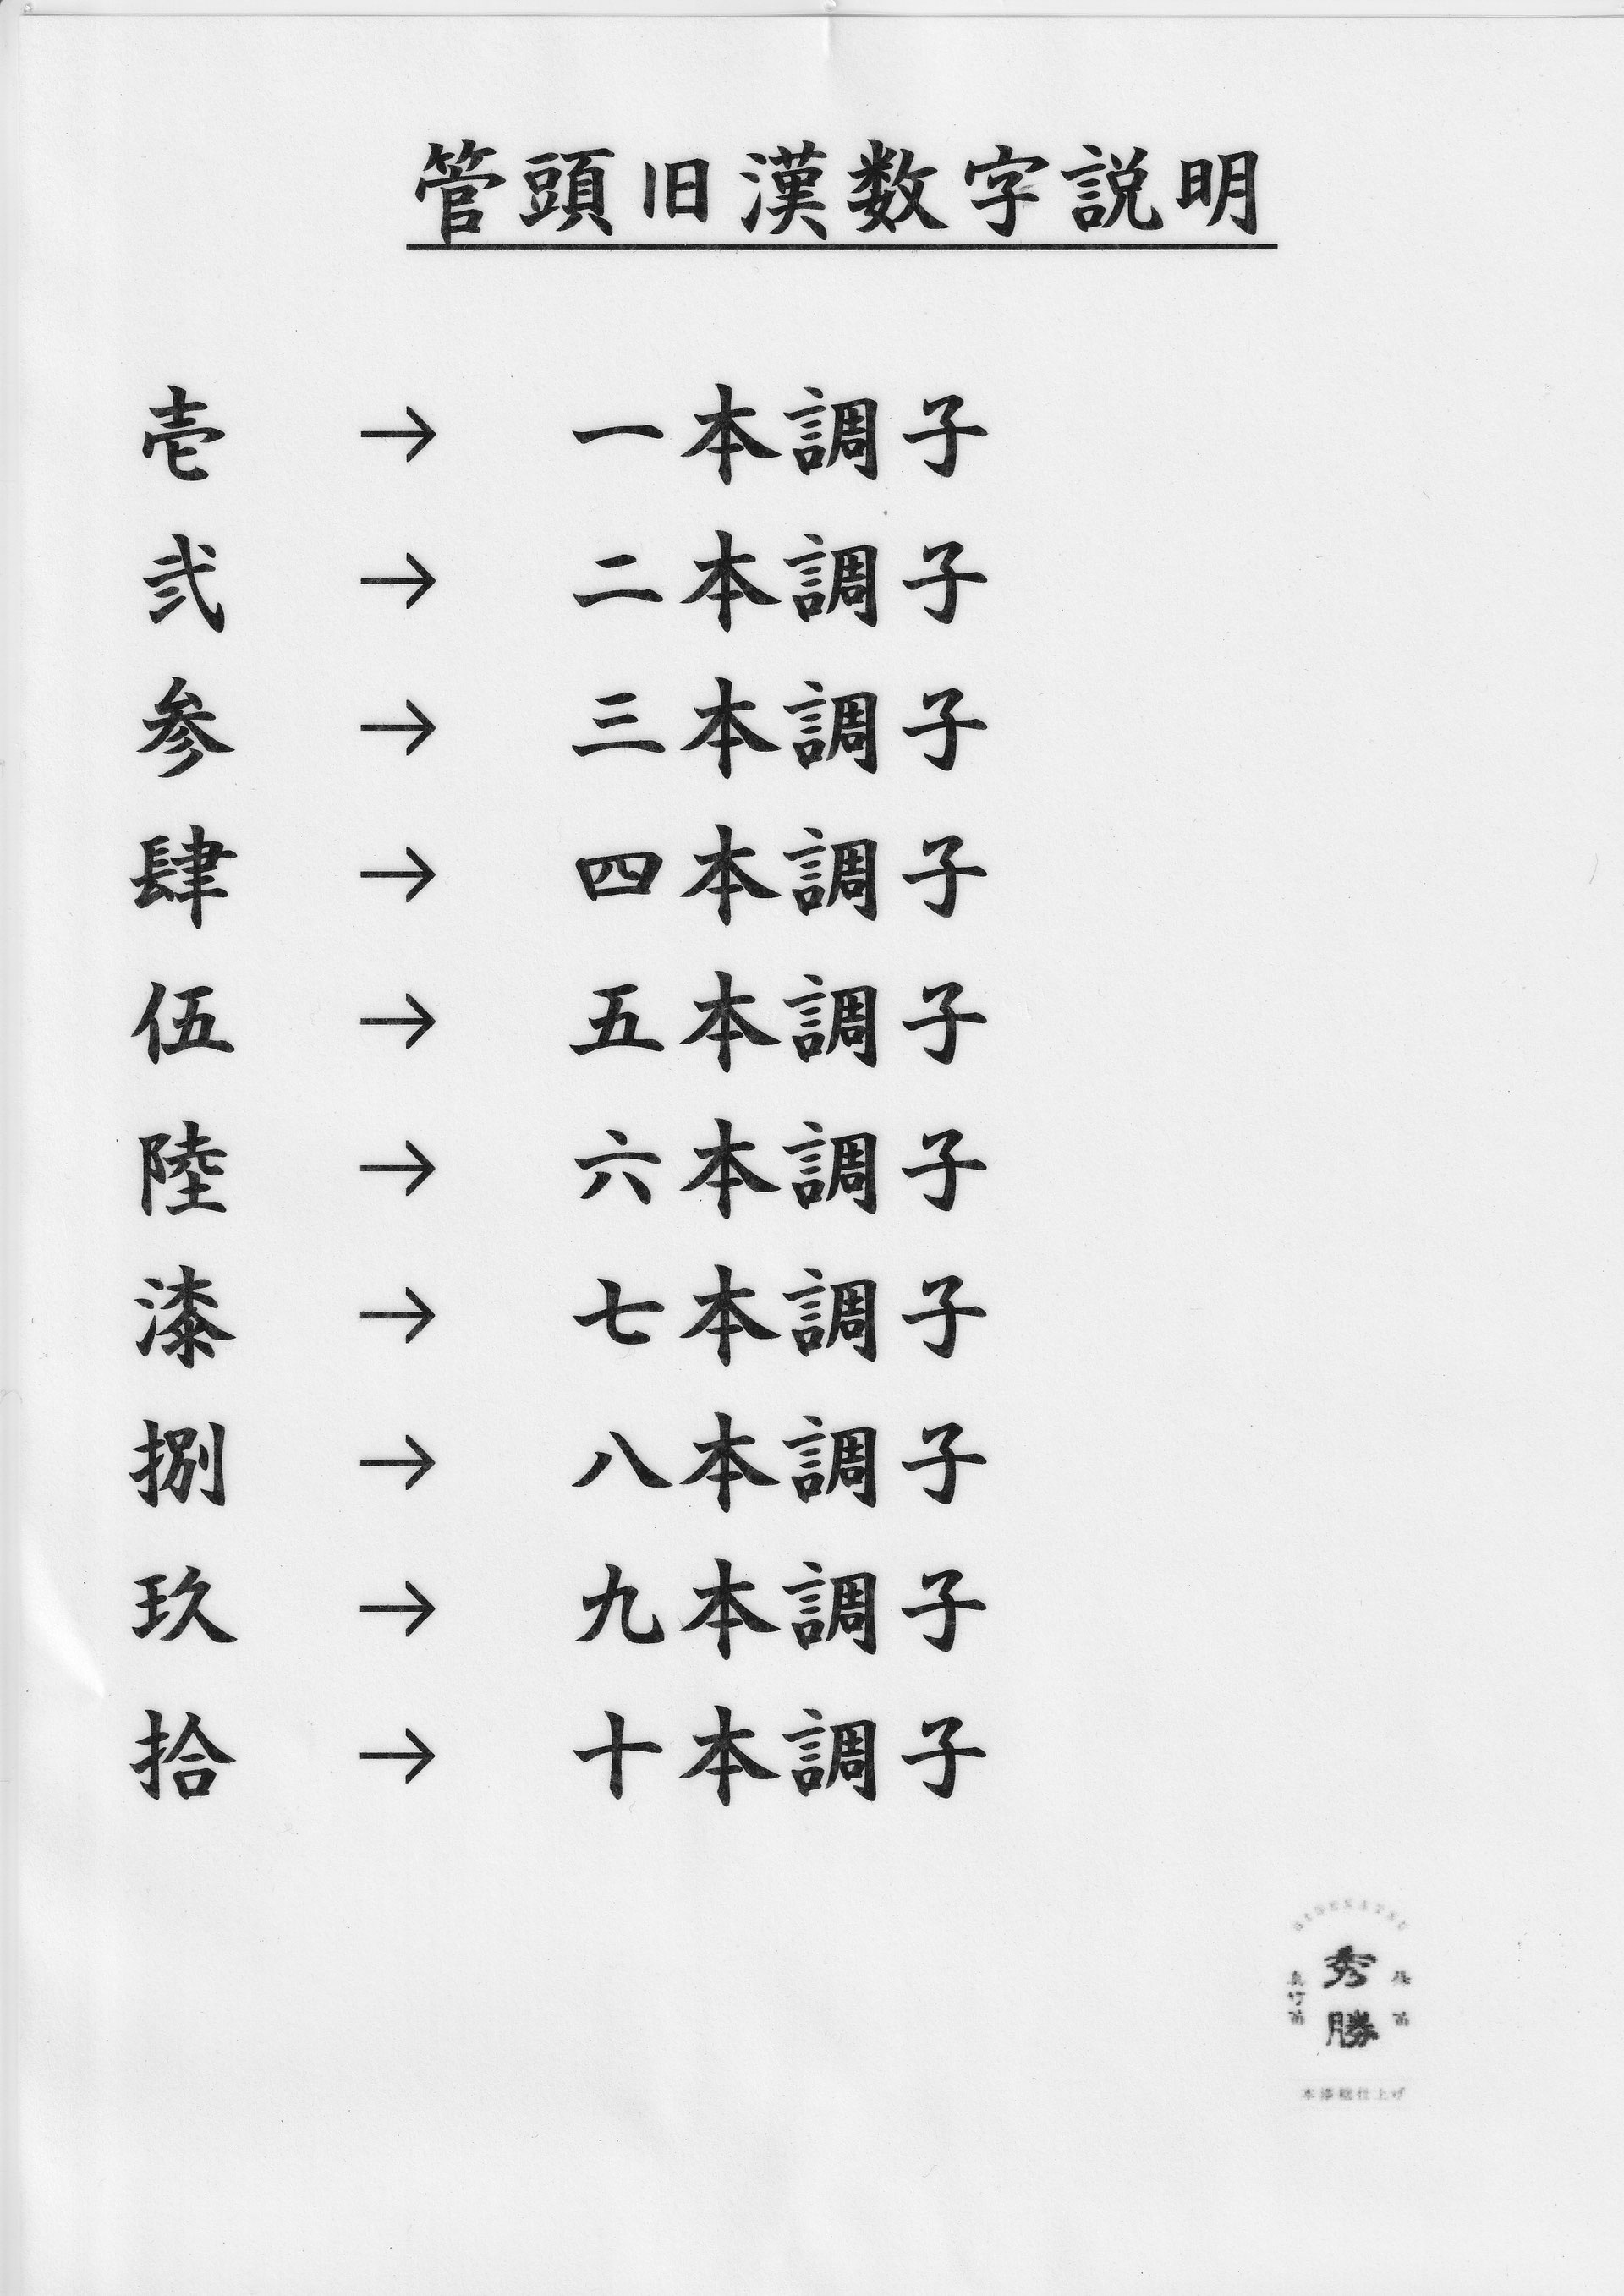 管頭旧漢数字説明
壱 → 一本調子
弐 → 二本調子
参 → 三本調子
肆 → 四本調子
伍 → 五本調子
陸 → 六本調子
漆 → 七本調子
捌 → 八本調子
玖 → 九本調子
拾 → 十本調子
HIDEKATSU
秀勝
真竹笛
本漆総仕上げ